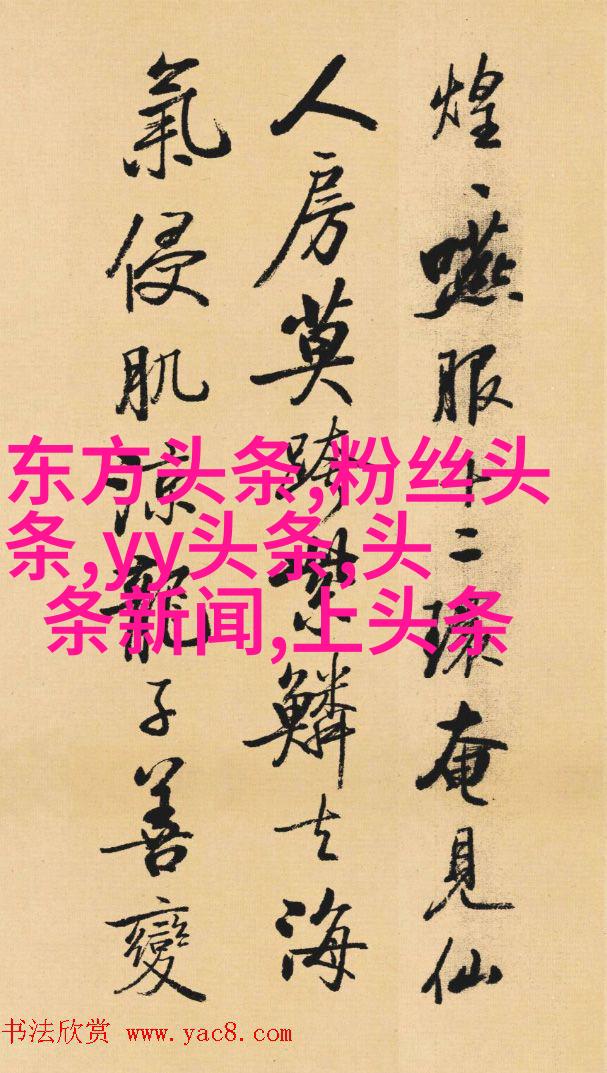 煌、嚥服十二環奄見仙
人房莫跨紫鱗去海
氣侵肌涼龍子善變
东方头条,粉丝头
条,yy头条,头
条新闻,上头条
书法欣赏 www.yac8.com